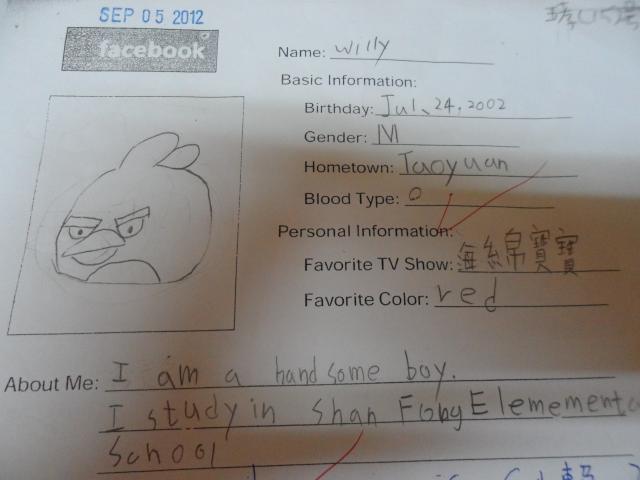 SEP 05 2012
facebook
Name: Willy
Basic Information:
Birthday: Jul, 24, 2002
Gender: M
Hometown: Taoyuan
Blood Type: O
Personal Information:
Favorite TV Show: 海綿寶寶
Favorite Color: red
About Me: I am a handsome boy.
I study in Shan Fong Elemementa
School